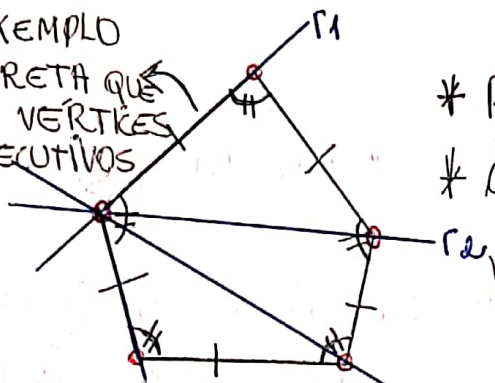 XEMPLO
RETA QUE
VÉRTICES
ECUTIVOS
r1
*
*
r2